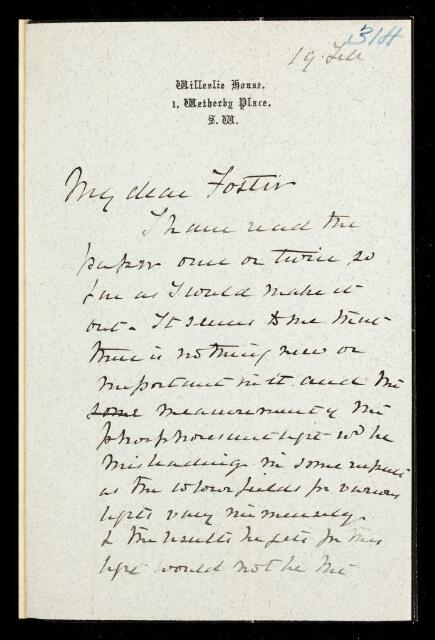 314
19 Feb
Willeslie House,
1, Wetherby Place,
S. W.
My dear Foster
I have read the
paper once or twice so
far as I could make it
out. It seems to me that
there is nothing new or
important in it and the
some measurement of the
phosphorescent light wd be
misleading in some respects
as the colour fields for various
lights vary immensely
& the results he gets for this
light would not be the